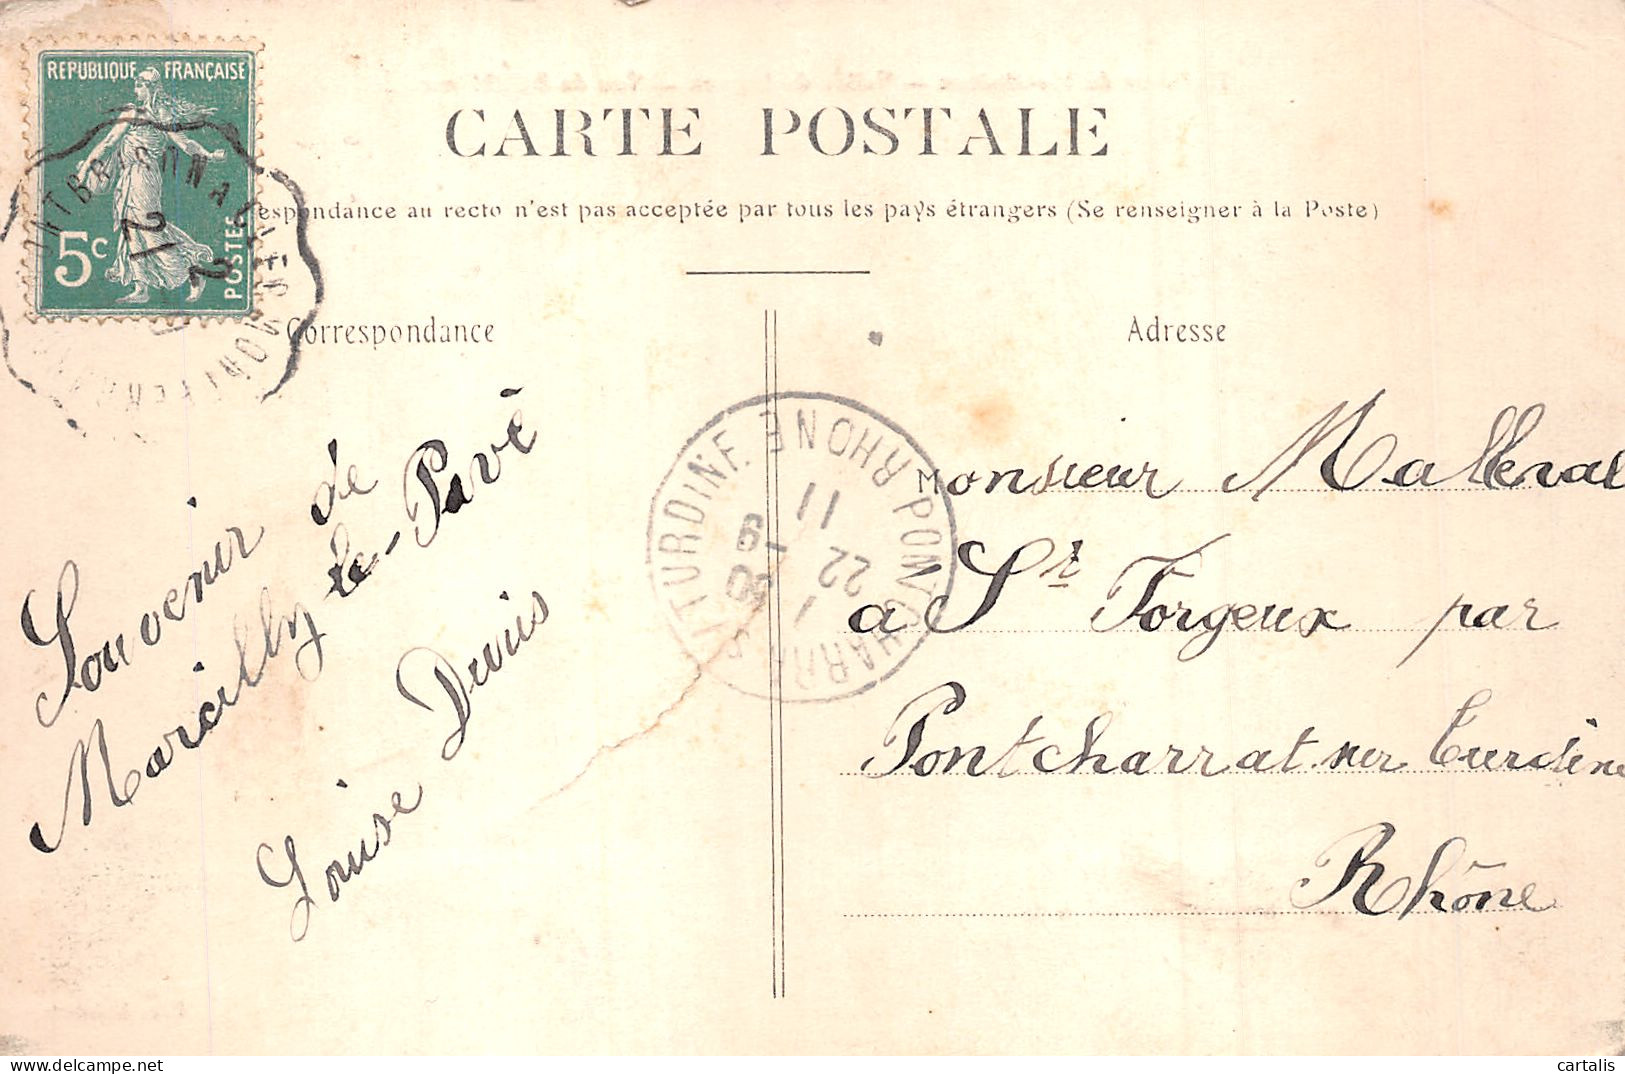 REPUBLIQUE FRANÇAISE
5c
POSTES
CARTE POSTALE
espondance au recto n'est pas acceptée par tous les pays étrangers (Se renseigner à la Poste)
Correspondance
Adresse
Souvenir de
Marcilly-le-Pavé
Louise
PONTCHARRA S/TURDINE RHONE
11
22 - 9
09
Monsieur Malleval
a St Forgeux par
Pontcharrat sur Turdine
Rhône
cartalis